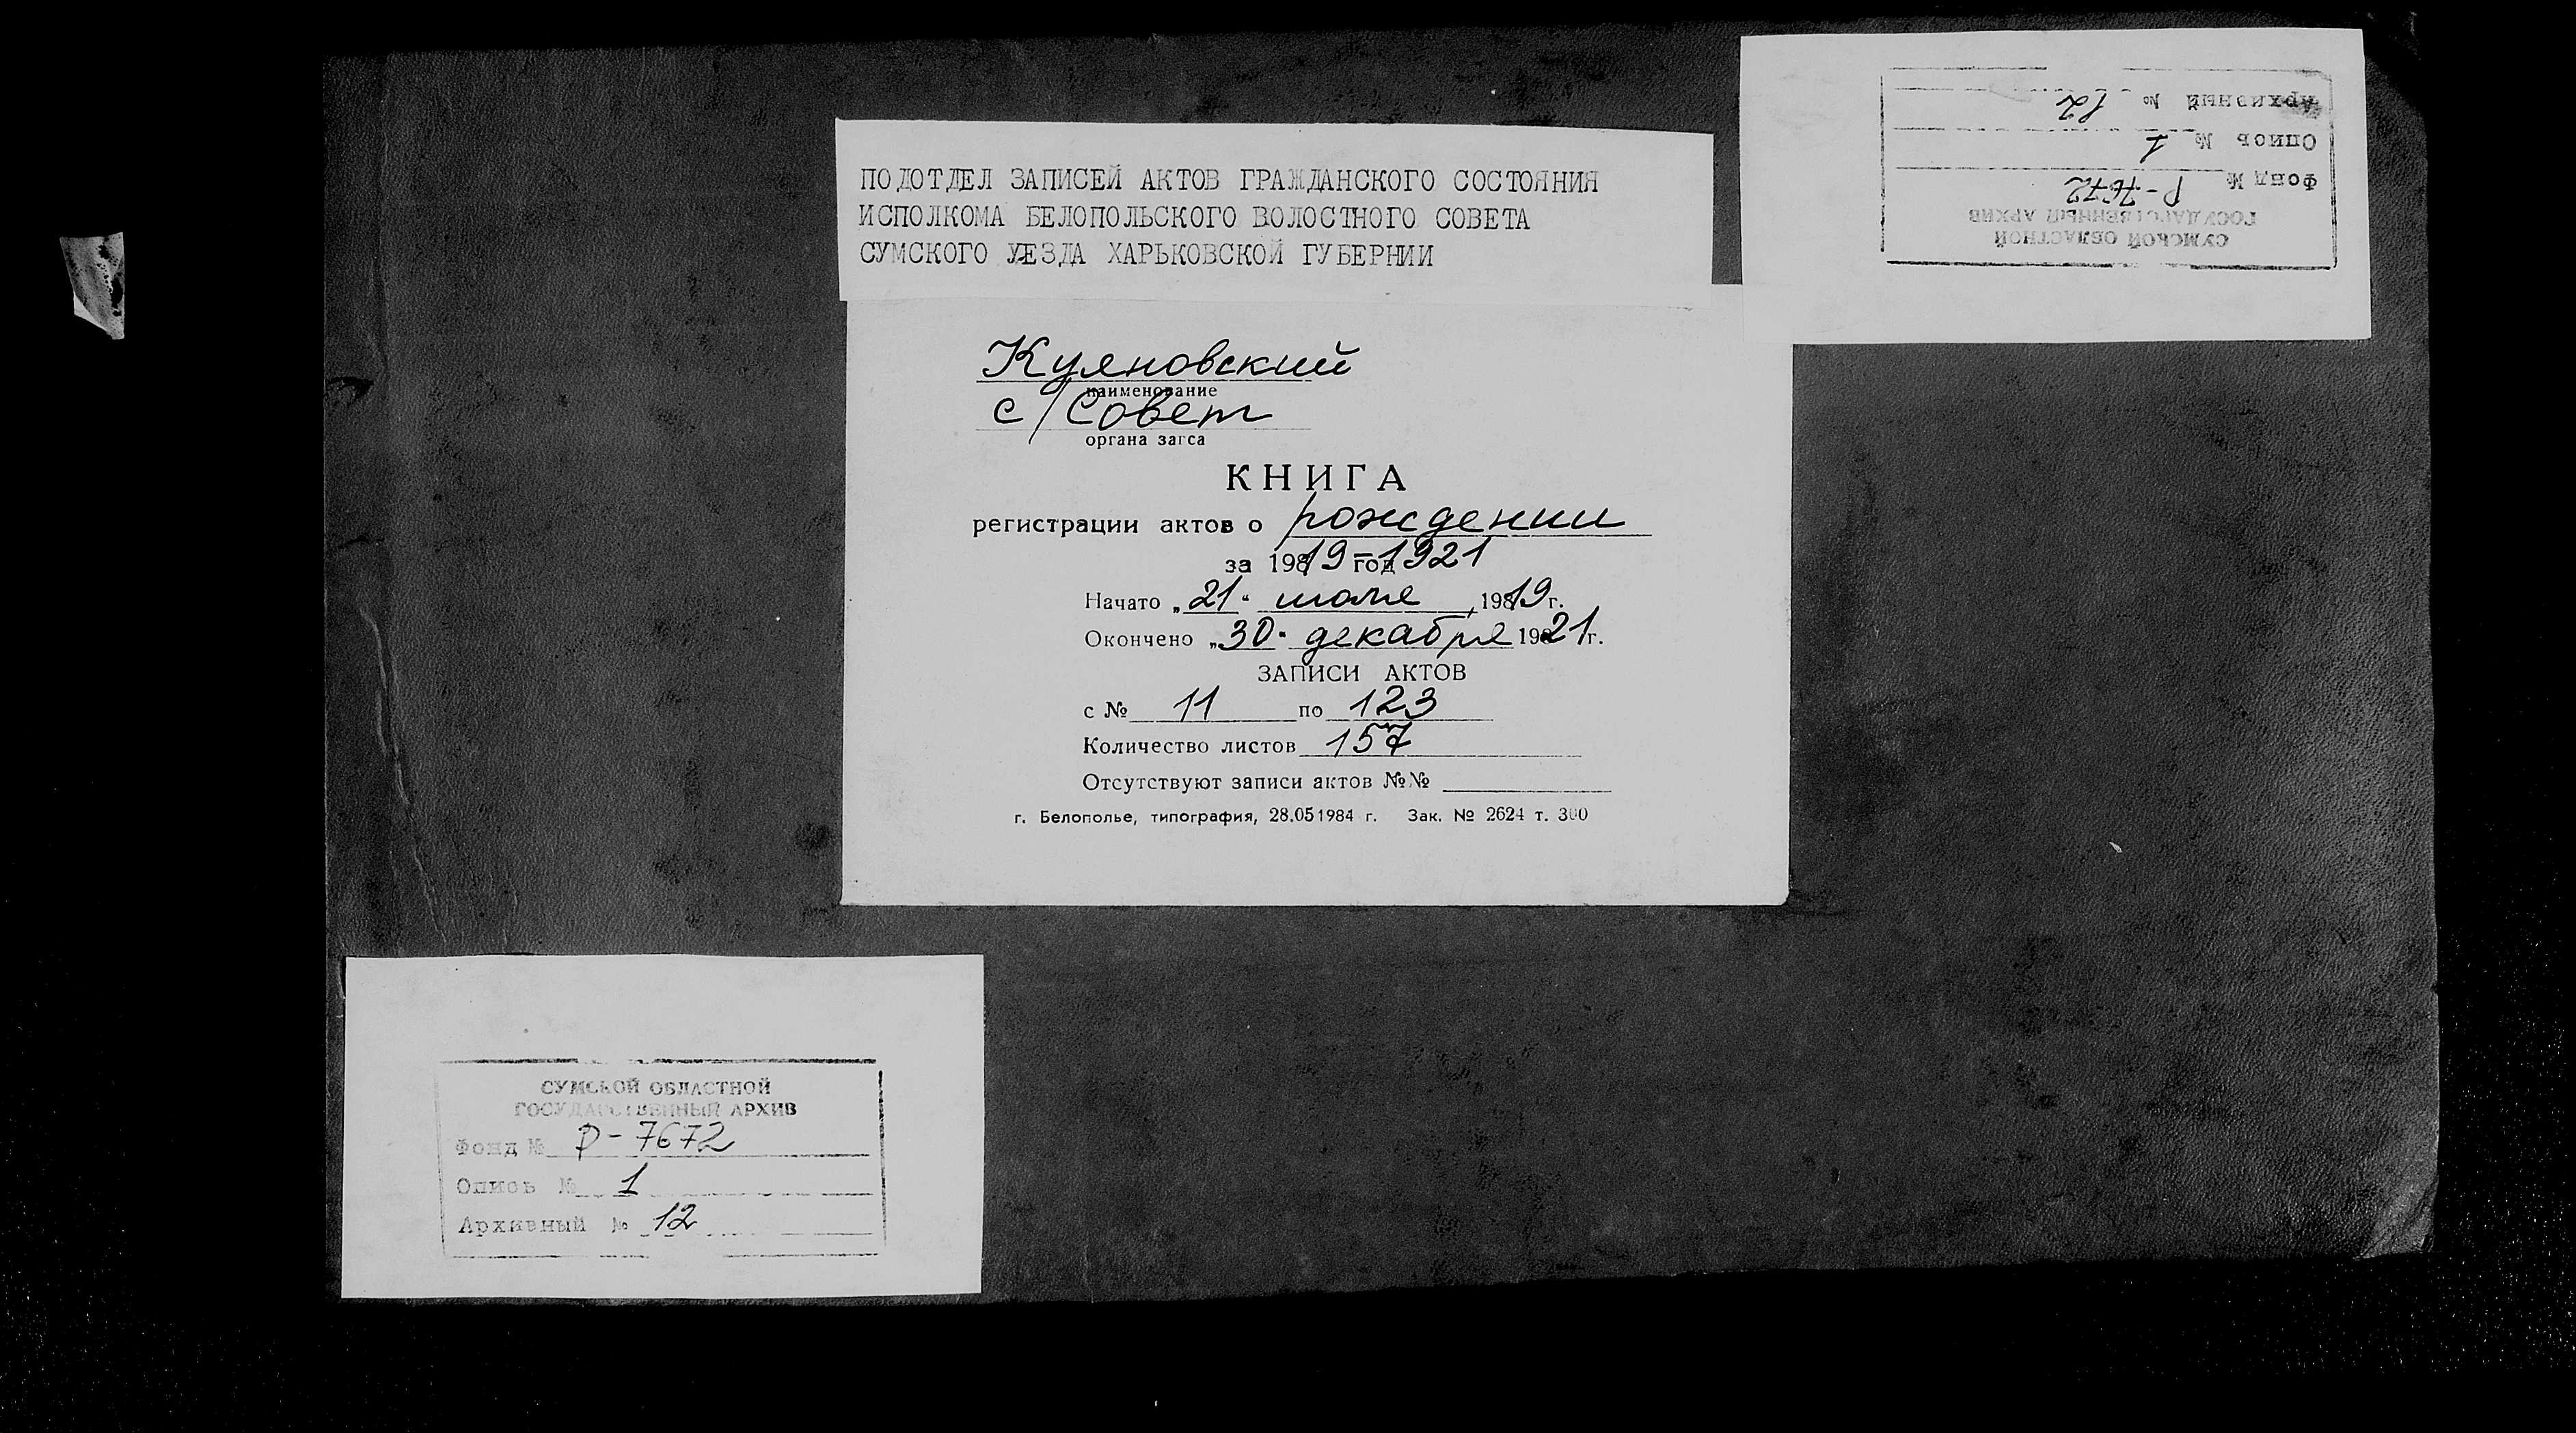 ПОДОТДЕЛ ЗАПИСЕЙ АКТОВ ГРАЖДАНСКОГО СОСТОЯНИЯ
ИСПОЛКОМА БЕЛОПОЛЬСКОГО ВОЛОСТНОГО СОВЕТА
СУМСКОГО УЕЗДА ХАРЬКОВСКОЙ ГУБЕРНИИ
Куяновский
наименование
с/Совет
органа загса
КНИГА
регистрации актов о рождении
за 1919-1921 год
Начато „21“ июля 1919 г.
Окончено „30“ декабря 1921 г.
ЗАПИСИ АКТОВ
с № 11 по 123
Количество листов 157
Отсутствуют записи актов №№
г. Белополье, типография, 28.05 1984 г. Зак. № 2624 т. 300
СУМСКОЙ ОБЛАСТНОЙ
ГОСУДАРСТВЕННЫЙ АРХИВ
Фонд № Р-7672
Опись № 1
Архивный № 12
СУМСКОЙ ОБЛАСТНОЙ
ГОСУДАРСТВЕННЫЙ АРХИВ
Фонд № Р-7672
Опись № 1
Архивный № 12